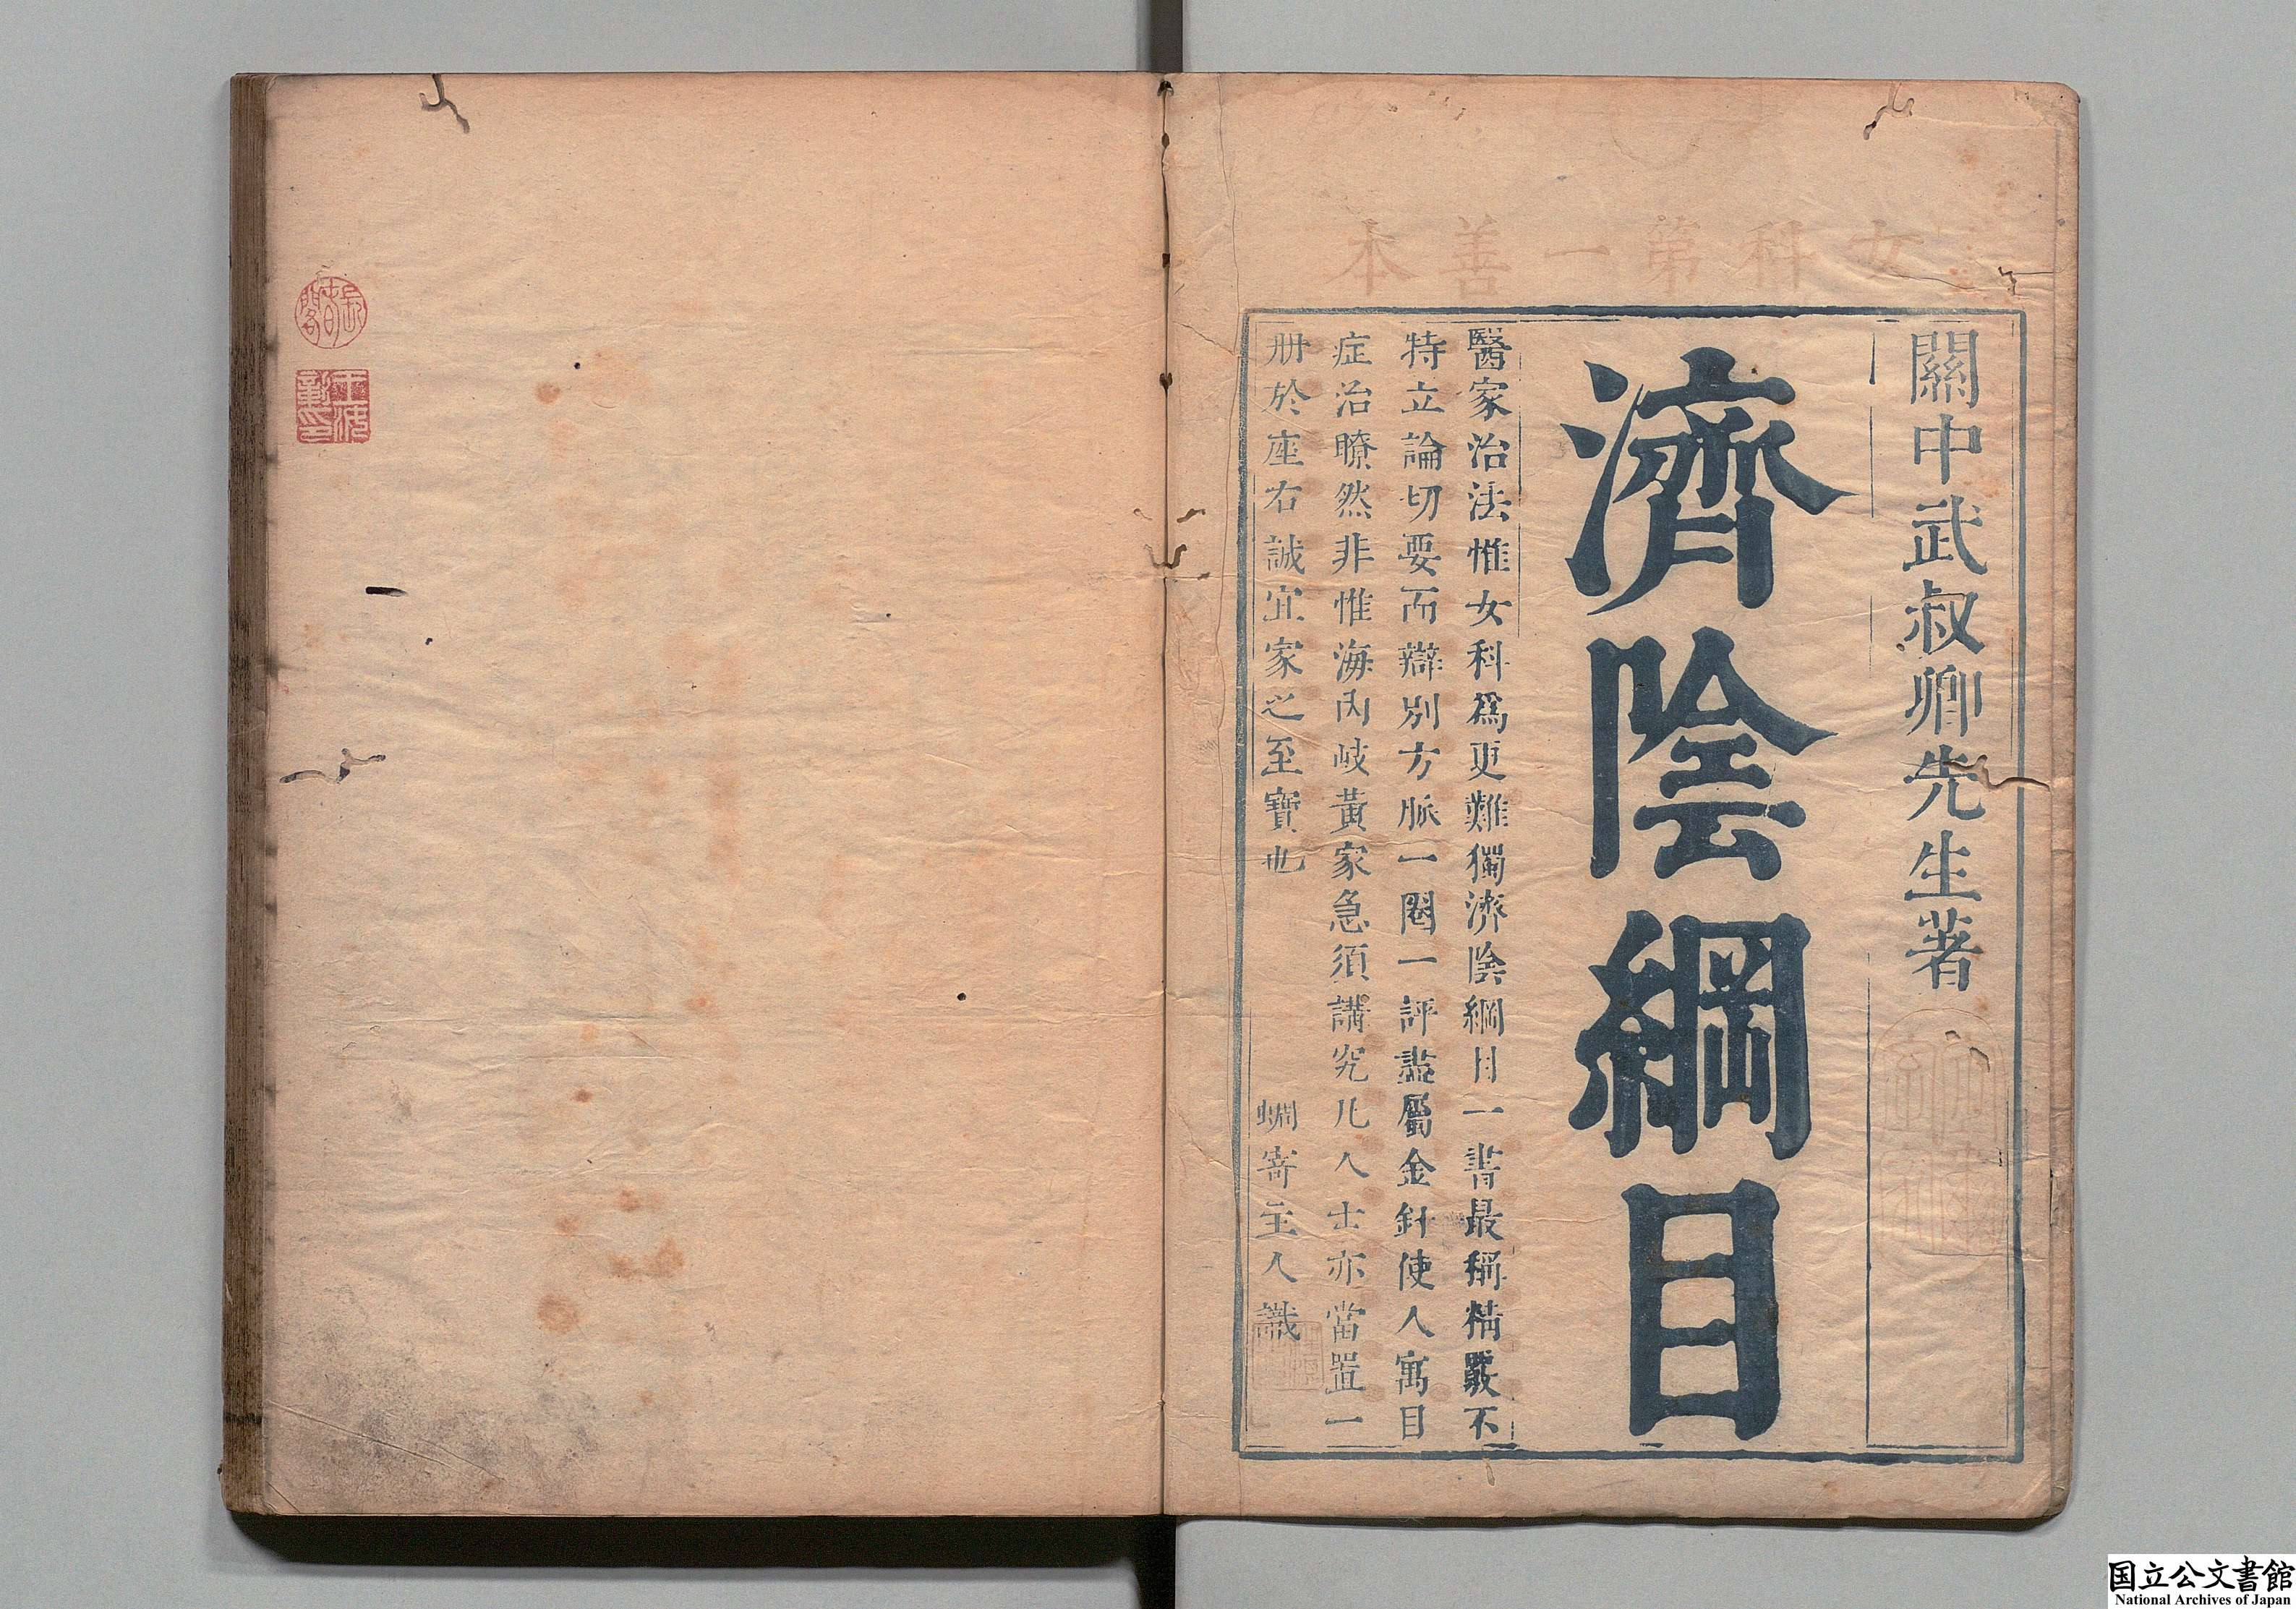 女科第一善本
關中武叔卿先生著
濟陰綱目
醫家治法惟女科爲更難獨濟陰綱目一書最稱精嚴不
特立論切要而辯別方脈一圈一評盡屬金針使人寓目
症治瞭然非惟海內岐黃家急須講究凡人士亦當置一
册於座右誠宜家之至寶也
蜩寄主人識
国立公文書館
National Archives of Japan